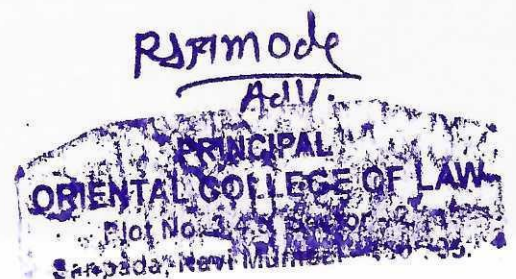 Adv.
PRINCIPAL
ORIENTAL COLLEGE OF LAW
Plot No. 3,4
Sanpada, Navi Mumbai